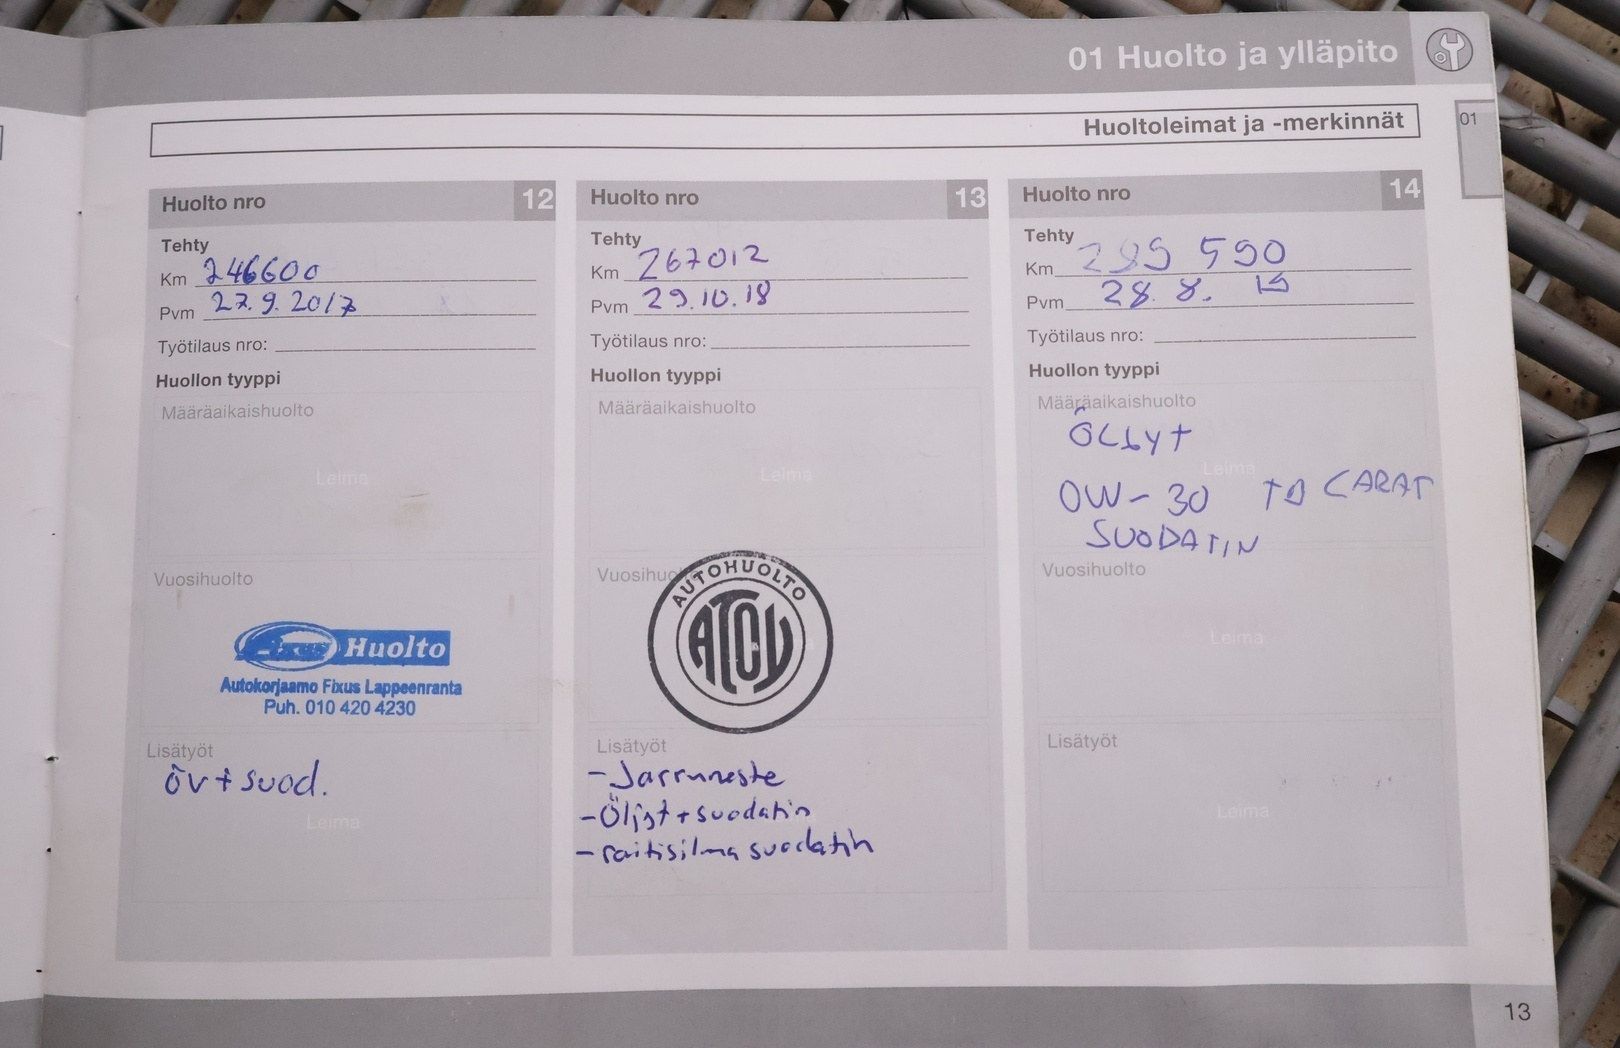 01 Huolto ja ylläpito
Huoltoleimat ja -merkinnät
01
Huolto nro 12
Tehty
Km 246600
Pvm 27.9.2017
Työtilaus nro:
Huollon tyyppi
Määräaikaishuolto
Leima
Vuosihuolto
Fixus Huolto
Autokorjaamo Fixus Lappeenranta
Puh. 010 420 4230
Lisätyöt
öv + suod.
Leima
Huolto nro 13
Tehty
Km 267012
Pvm 29.10.18
Työtilaus nro:
Huollon tyyppi
Määräaikaishuolto
Leima
Vuosihuolto
AUTOHUOLTO
ATOY
Lisätyöt
- Jarruneste
- Öljyt + suodatin
- raitisilma suodatin
Huolto nro 14
Tehty
Km 299 590
Pvm 28. 8. 19
Työtilaus nro:
Huollon tyyppi
Määräaikaishuolto
ÖLJYT
Leima
0W-30 CARAT
SUODATIN
Vuosihuolto
Leima
Lisätyöt
Leima
13